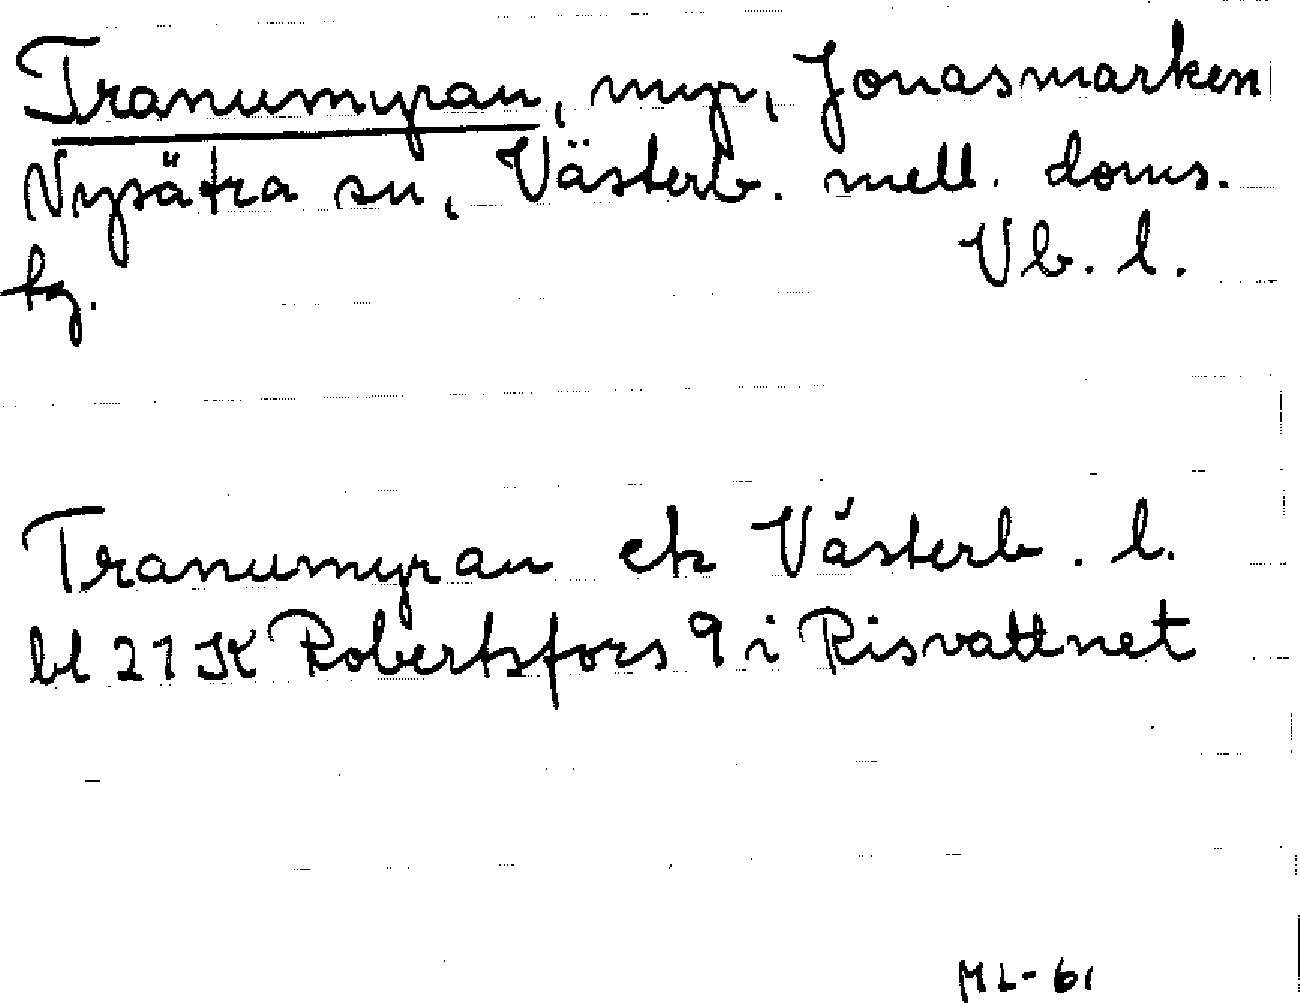 Tranumyran, myr, Jonasmarken
Nysätra sn, Västerb. mell. doms.
tg. Vb. l.
Tranumyran ek Västerb. l.
bl 21 K Robertsfors 9 i Risvattnet
ML-61